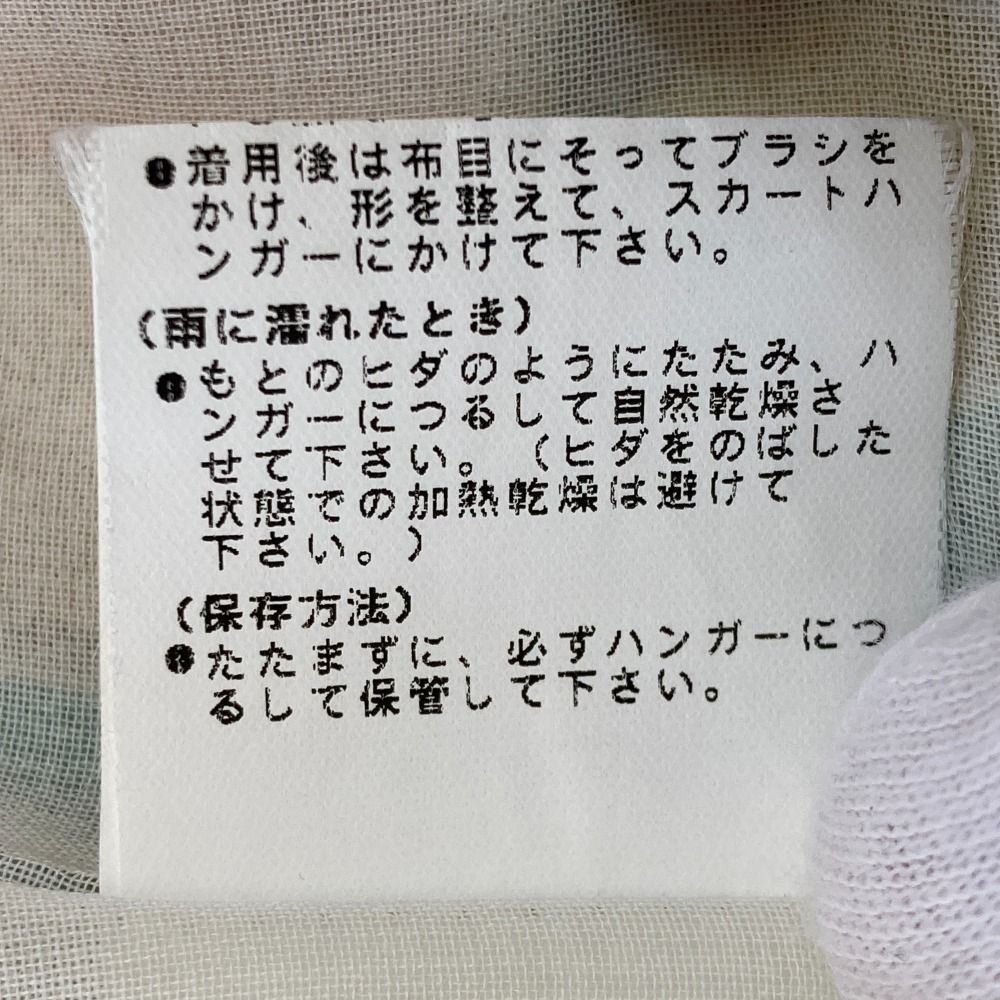 ●着用後は布目にそってブラシを
かけ、形を整えて、スカートハ
ンガーにかけて下さい。
(雨に濡れたとき)
●もとのヒダのようにたたみ、ハ
ンガーにつるして自然乾燥さ
せて下さい。(ヒダをのばした
状態での加熱乾燥は避けて
下さい。)
(保存方法)
●たたまずに、必ずハンガーにつ
るして保管して下さい。